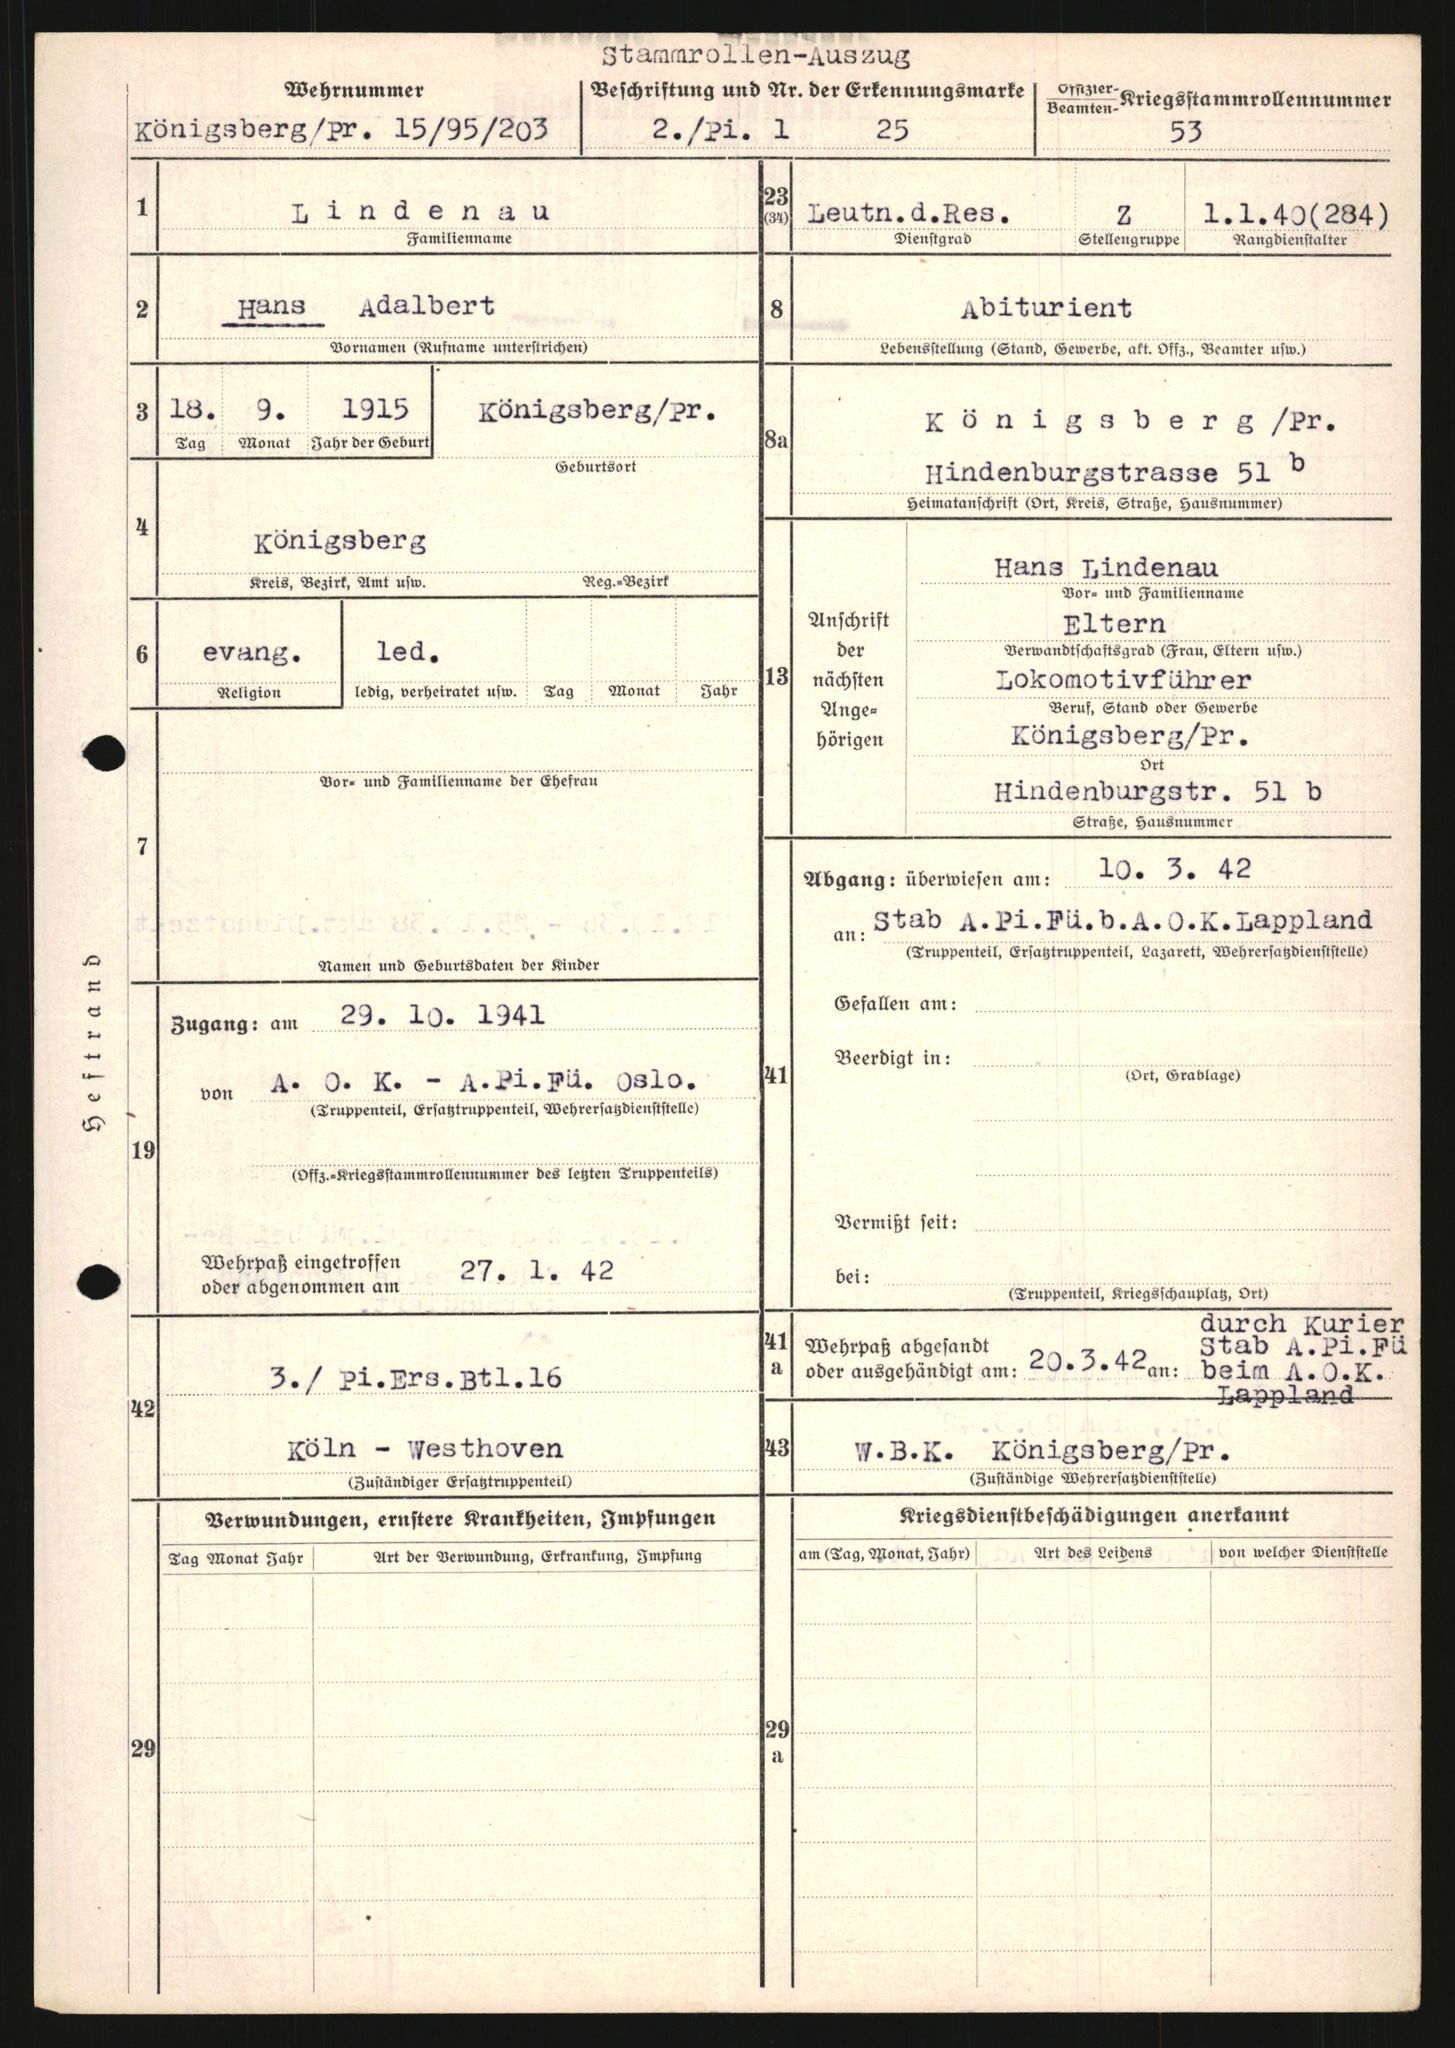 Stammrollen-Auszug
Wehrnummer
Königsberg/Pr. 15/95/203
Beschriftung und Nr. der Erkennungsmarke
2./Pi. 1 25
Offizier-
Beamten- Kriegsstammrollennummer
53
1
Lindenau
Familienname
23
(34)
Leutn.d.Res. Z 1.1.40(284)
Dienstgrad Stellengruppe Rangdienstalter
2
Hans Adalbert
Vornamen (Rufname unterstrichen)
8
Abiturient
Lebensstellung (Stand, Gewerbe, akt. Offz., Beamter usw.)
3
18. 9. 1915 Königsberg/Pr.
Tag Monat Jahr der Geburt
Geburtsort
8a
Königsberg/Pr.
Hindenburgstrasse 51 b
Heimatanschrift (Ort, Kreis, Straße, Hausnummer)
4
Königsberg
Kreis, Bezirk, Amt usw. Reg.=Bezirk
6
evang. led.
Religion ledig, verheiratet usw. Tag Monat Jahr
13
Anschrift
der
nächsten
Ange=
hörigen
Hans Lindenau
Vor= und Familienname
Eltern
Verwandtschaftsgrad (Frau, Eltern usw.)
Lokomotivführer
Beruf, Stand oder Gewerbe
Königsberg/Pr.
Ort
Hindenburgstr. 51 b
Straße, Hausnummer
7
Vor= und Familienname der Ehefrau
Namen und Geburtsdaten der Kinder
Heftrand
19
Zugang: am 29. 10. 1941
von A. O. K. - A.Pi.Fü. Oslo.
(Truppenteil, Ersatztruppenteil, Wehrersatzdienststelle)
(Offz.=Kriegsstammrollennummer des letzten Truppenteils)
Wehrpaß eingetroffen
oder abgenommen am 27. 1. 42
41
Abgang: überwiesen am: 10. 3. 42
an: Stab A.Pi.Fü.b.A.O.K.Lappland
(Truppenteil, Ersatztruppenteil, Lazarett, Wehrersatzdienststelle)
Gefallen am:
Beerdigt in:
(Ort, Grablage)
Vermißt seit:
bei:
(Truppenteil, Kriegsschauplatz, Ort)
42
3./ Pi.Ers.Btl.16
Köln - Westhoven
(Zuständiger Ersatztruppenteil)
41
a
Wehrpaß abgesandt
oder ausgehändigt am: 20.3.42 an:
durch Kurier
Stab A.Pi.Fü
beim A.O.K.
Lappland
43
W.B.K. Königsberg/Pr.
(Zuständige Wehrersatzdienststelle)
29
Verwundungen, ernstere Krankheiten, Impfungen
Tag Monat Jahr Art der Verwundung, Erkrankung, Impfung
29
a
Kriegsdienstbeschädigungen anerkannt
am (Tag, Monat, Jahr) Art des Leidens von welcher Dienststelle